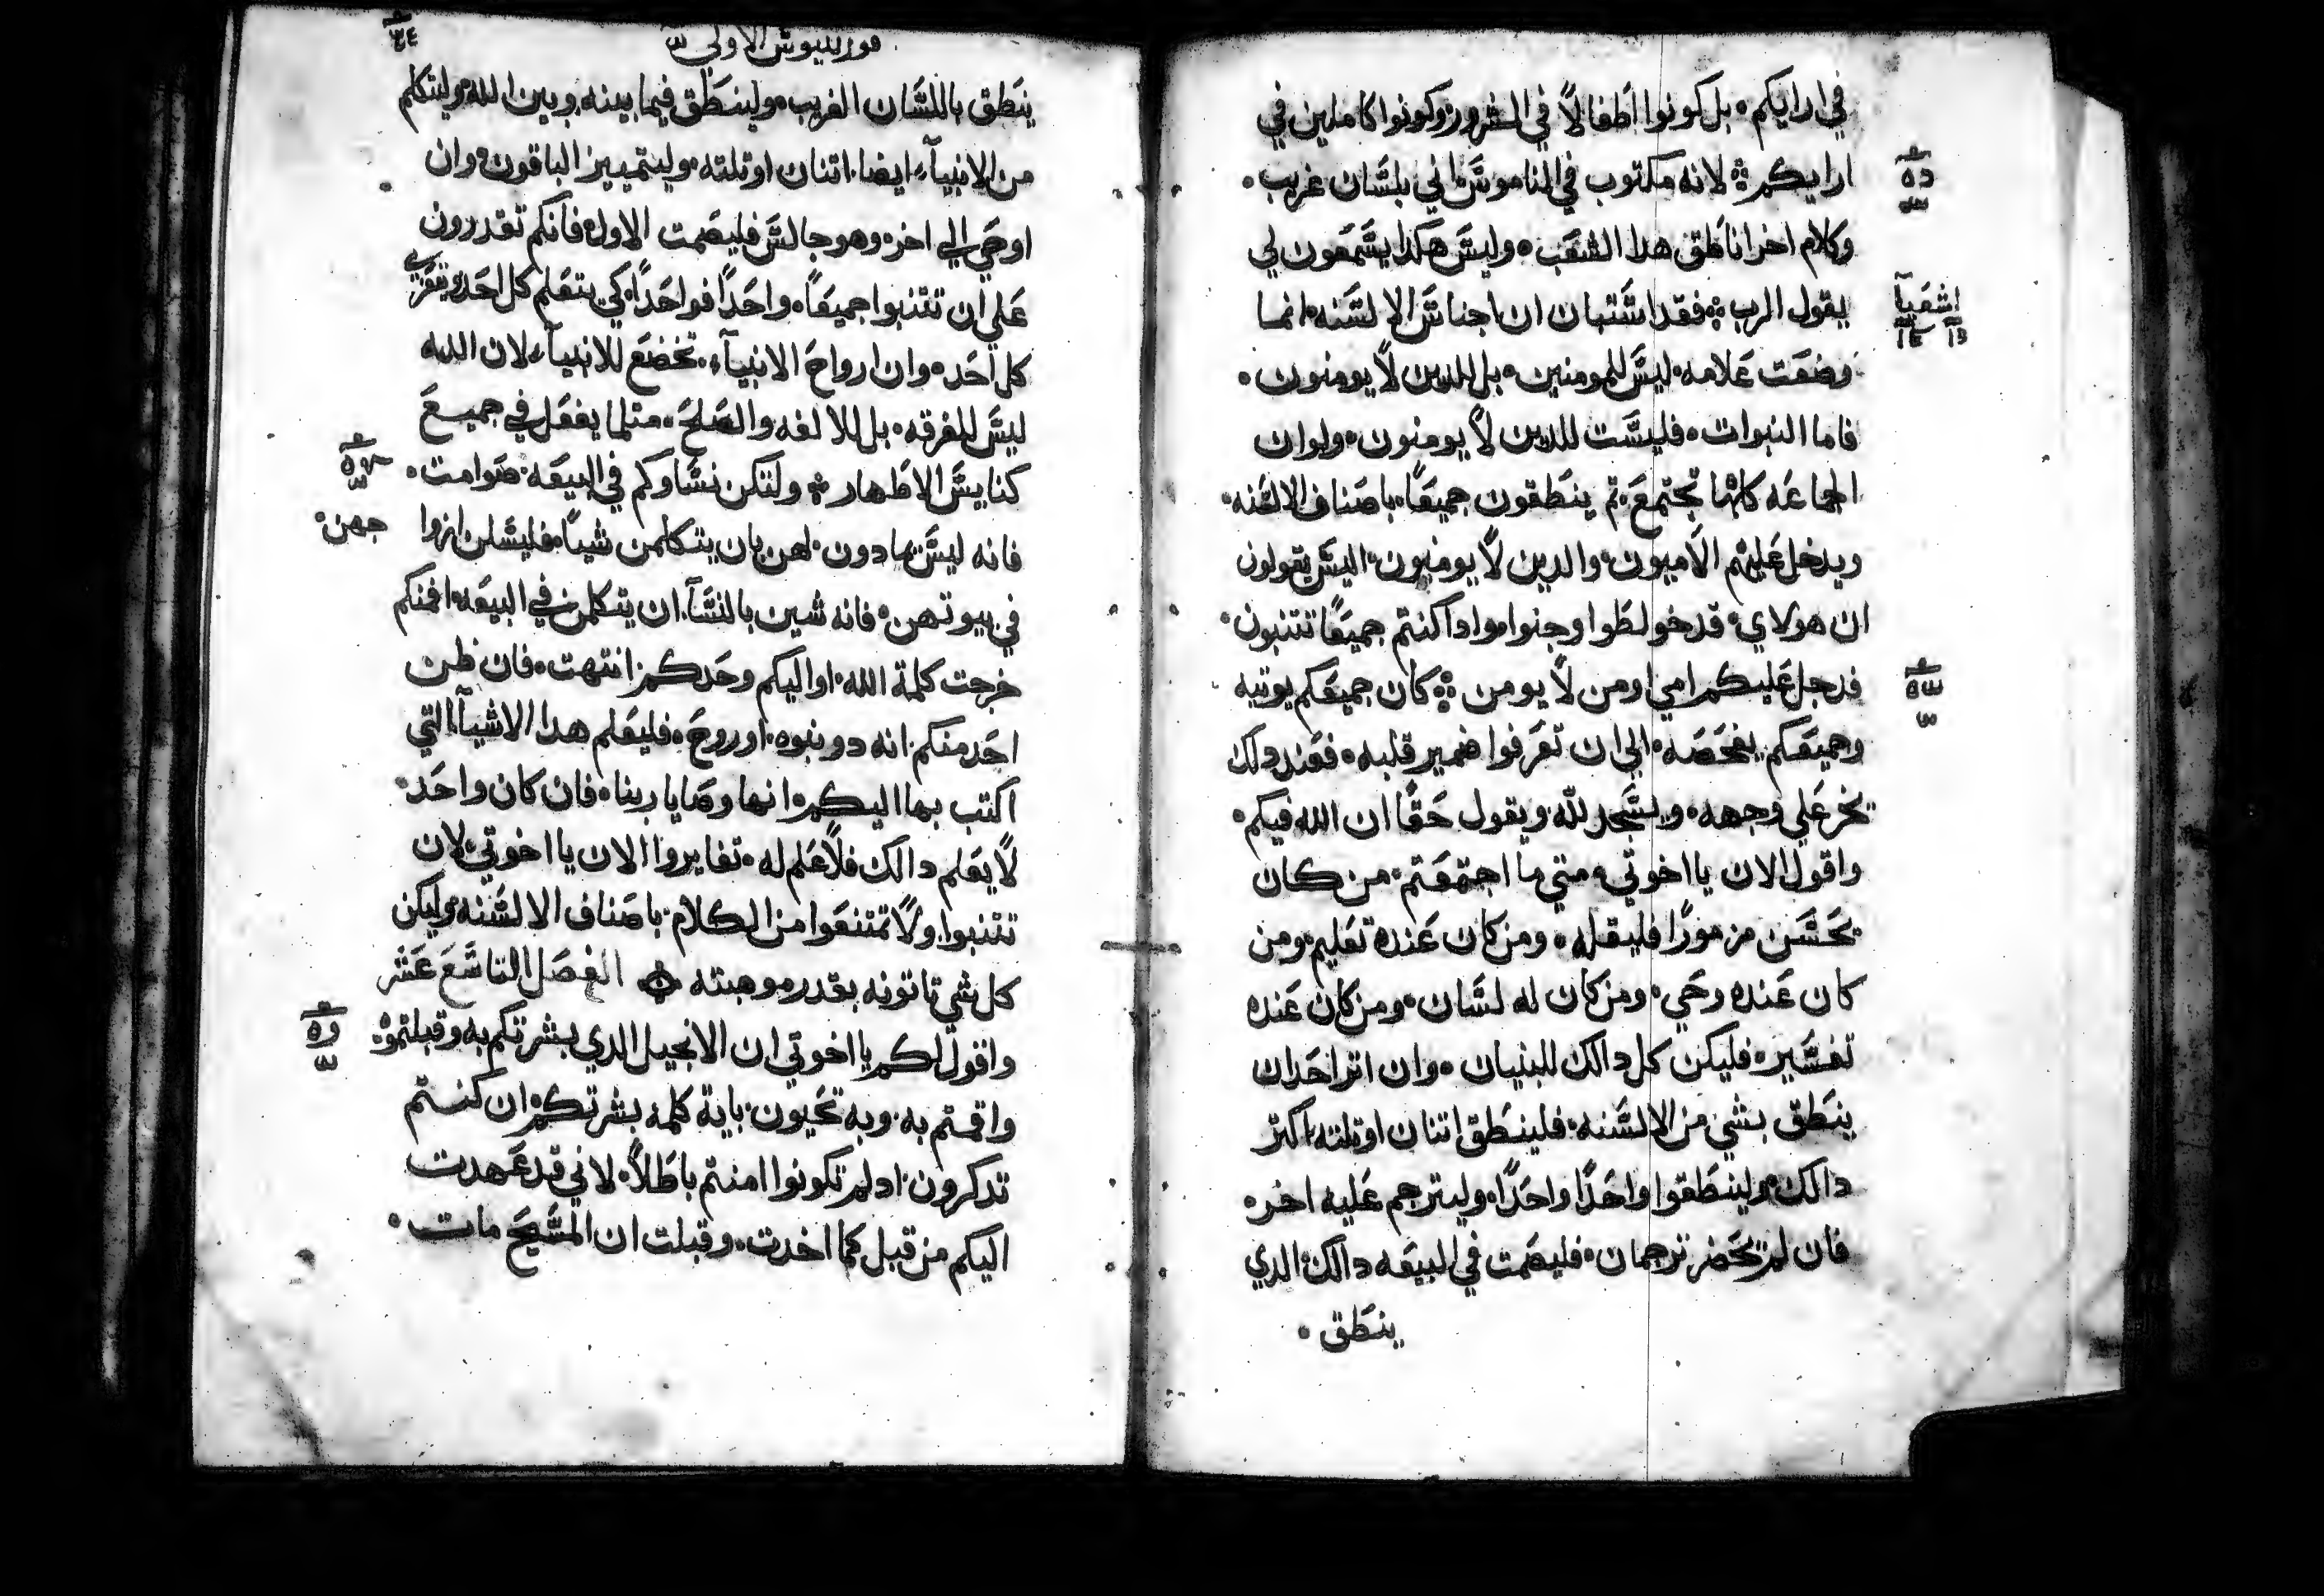 في ارايكم، بل كونوا اطفالاً في الشرور وكونوا كاملين في
ارايكم لانه مكتوب في الناموس اني بلسان غريب
وكلام اخر اناطق هدا الشعب، وليس هكدا يسمعون لي
يقول الرب فقد استبان ان اجناس الالسنه انما
وضعت علامه، ليس للمومنين، بل للدين لا يومنون
فاما النبوات، فليست للدين لا يومنون، ولو ان
الجماعه كلها تجتمع، تم ينطقون جميعًا، باصناف الالسنه
ويدخل عليهم الاميون، والدين لا يومنون، اليس يقولون
ان هولاي، قد خولطوا وجنوا، وادا كنتم جميعًا تتنبون
فدخل عليكم امي اومن لا يومن كان جميعكم يوتبه
وجميعكم يفحصه، الي ان تعرفوا ضمير قلبه، فعند دلك
يخر علي وجهه، ويسجد لله، ويقول حقًا ان الله فيكم
واقول الان يا اخوتي، متي ما اجتمعتم، من كان
يحسن مزمورًا فليقله، ومن كان عنده تعليم، ومن
كان عنده وحي، ومن كان له لسان، ومن كان عنده
تفسير، فليكن كل دالك للبنيان، وان اتر احد ان
ينطق بشي من الالسنه، فلينطق اتنان او تلته، اكتر
دالك، ولينطقوا واحدًا واحدًا، وليترجم عليه اخر
فان لم يحضر ترجمان، فليصمت في البيعه دالك الدي
ينطق
اشعيا
قورنتيوس الاولي
ينطق باللسان الغريب، ولينطق فيما بينه وبين الله، وليتكلم
من الانبيآء ايضا، اتنان او تلته، وليتمييز الباقون، وان
اوحي الي اخر، وهو جالس فليصمت الاول، فانكم تقدرون
علي ان تتنبوا جميعًا، واحدًا فواحدًا، كي يتعلم كل احد، ويتعزي
كل احد، وان ارواح الانبيآء، تخضع للانبيآء، لان الله
ليس للفرقه، بل للالفه والصلح، متلما يفعل في جميع
كنايس الاطهار ولتكن نساوكم في البيعه، صوامت
فانه ليس مادون لهن بان يتكلمن شيًا، فليسلن ازوا جهن
في بيوتهن، فانه شين بالنسآ، ان يتكلمن في البيعه، افمنكم
خرجت كلمة الله، او اليكم وحدكم انتهت، فان ظن
احد منكم، انه دو نبوه، اوروح، فليعلم هدا الاشيآ التي
اكتب بها اليكم، انها وصايا ربنا، فان كان واحد
لا يعلم دالك فلا علم له، تغايروا الان يا اخوتي، لان
تتنبوا، ولا تمتنعوا من الكلام، باصناف الالسنه، وليكن
كل شي تاتونه بقدر موهبته الفصل التاسع عشر
واقول لكم يا اخوتي ان الانجيل الدي بشرتكم به وقبلتموه
واقمتم به، وبه تحيون، باية كلمه بشرتكم، ان كنتم
تدكرون، اد لم تكونوا امنتم باطلاً، لاني قد عهدت
اليكم من قبل كما اخدت، وقبلت ان المسيح مات